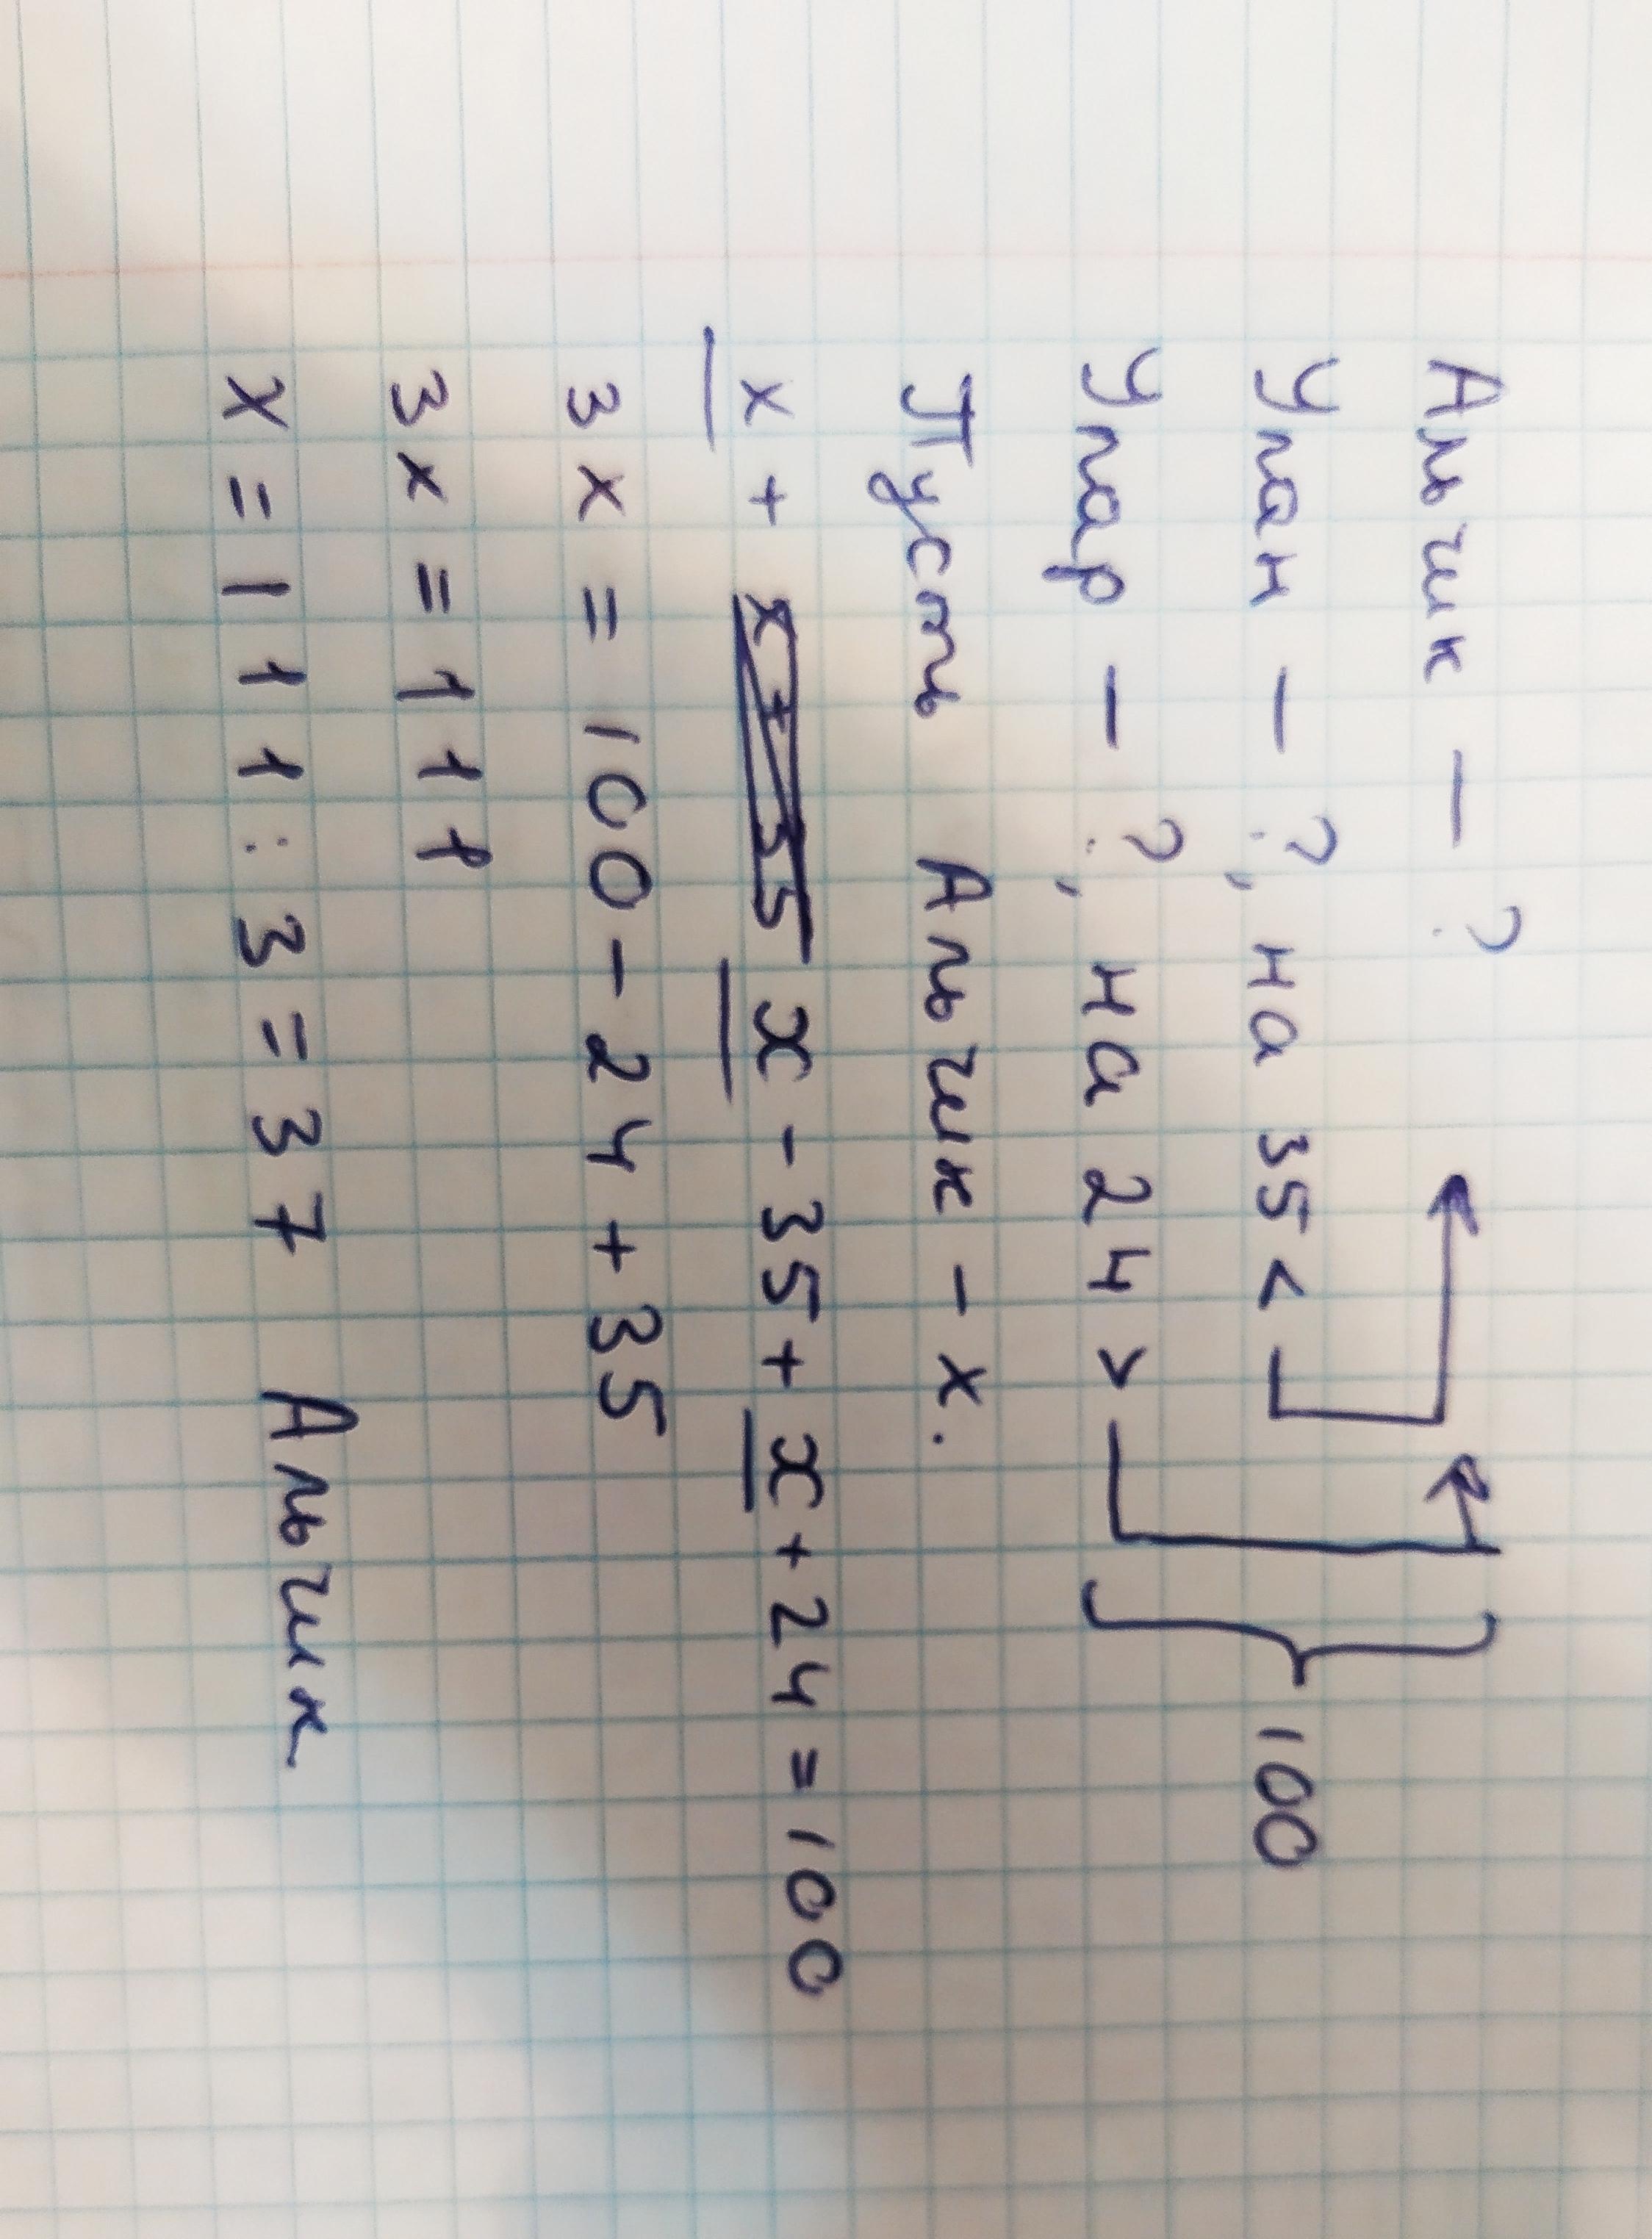 Альчик - ?
Улан - ?, на 35 <
Улар - ?, на 24 > } 100
Пусть Альчик - х.
х + х - 35 + х + 24 = 100
3х = 100 - 24 + 35
3х = 111
х = 111 : 3 = 37 Альчик